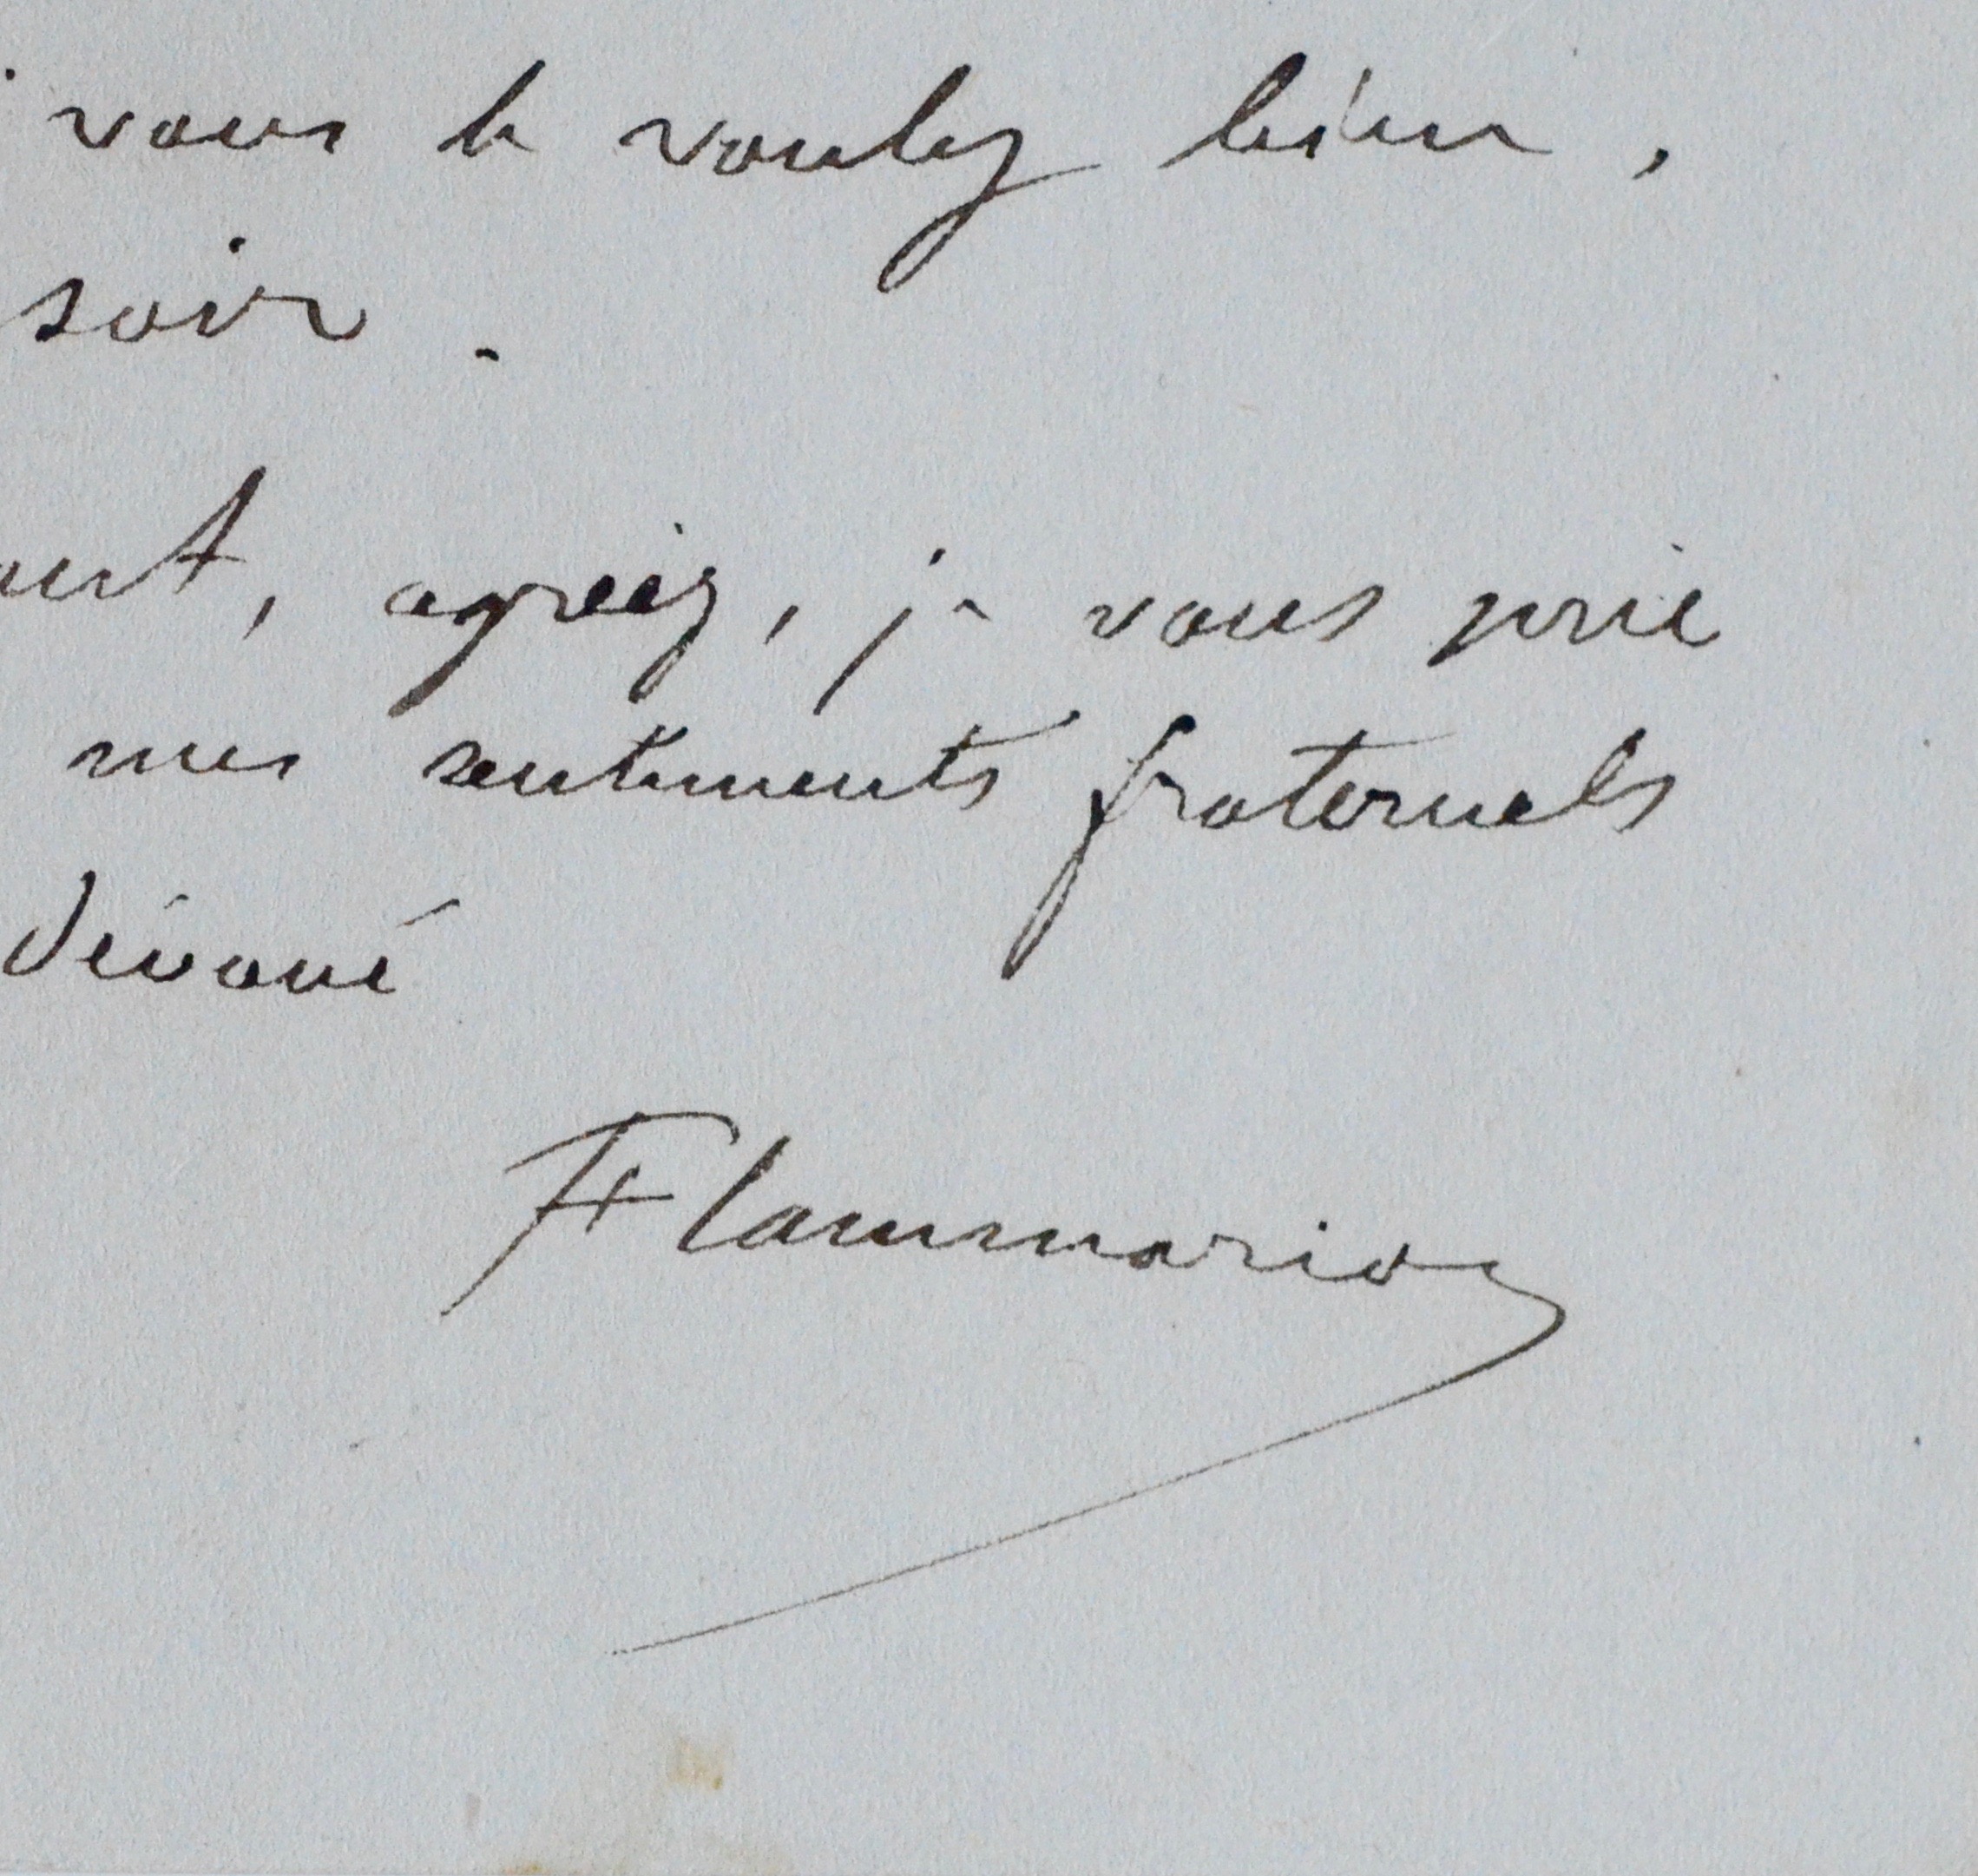 vous le voulez bien,
soir.
, agréez, je vous prie
mes sentiments fraternels
dévoué
Flammarion